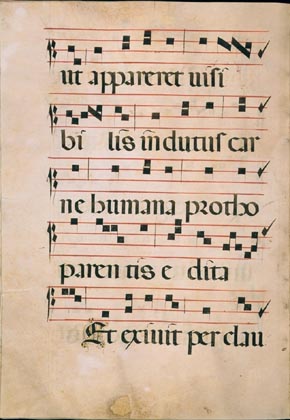 ut appareret uisi
bi lis īndutus car
ne humana protho
paren tis e dita
Et exiuit per clau